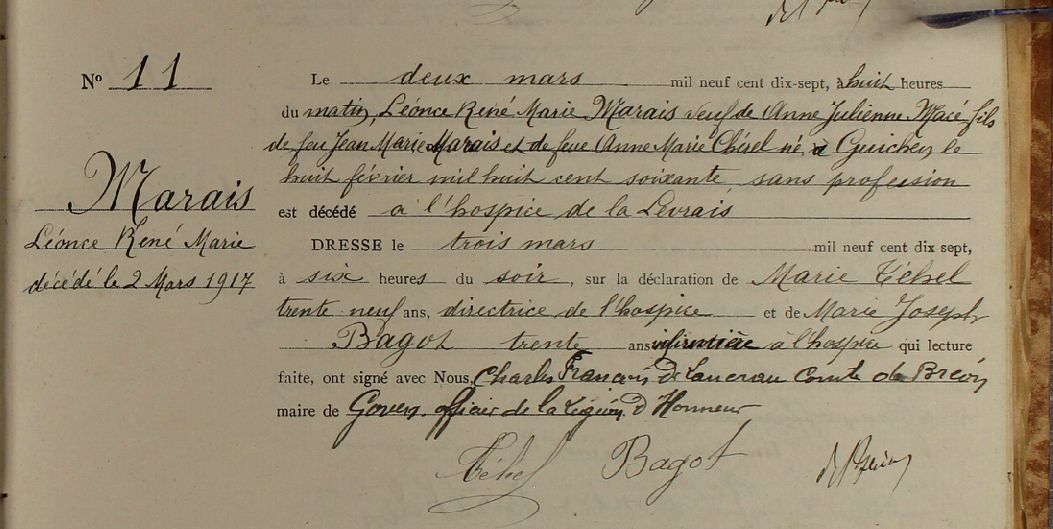 N° 11
Le deux mars mil neuf cent dix-sept, à huit heures
du matin, Léonce René Marie Marais veuf de Anne Julienne Macé fils
de feu Jean Marie Marais et de feue Anne Marie Chérel né à Guichen le
huit février mil huit cent soixante, sans profession
est décédé à l'hospice de la Levrais
Marais
Léonce René Marie
décédé le 2 Mars 1917
DRESSE le trois mars mil neuf cent dix sept,
à six heures du soir, sur la déclaration de Marie Téhel
trente neuf ans, directrice de l'hospice et de Marie Joseph
Bagot trente ans infirmière à l'hospice qui lecture
faite, ont signé avec Nous, Charles François de Lancrau Comte de Bréon
maire de Goven, officier de la Légion d'Honneur
Téhel Bagot de Bréon